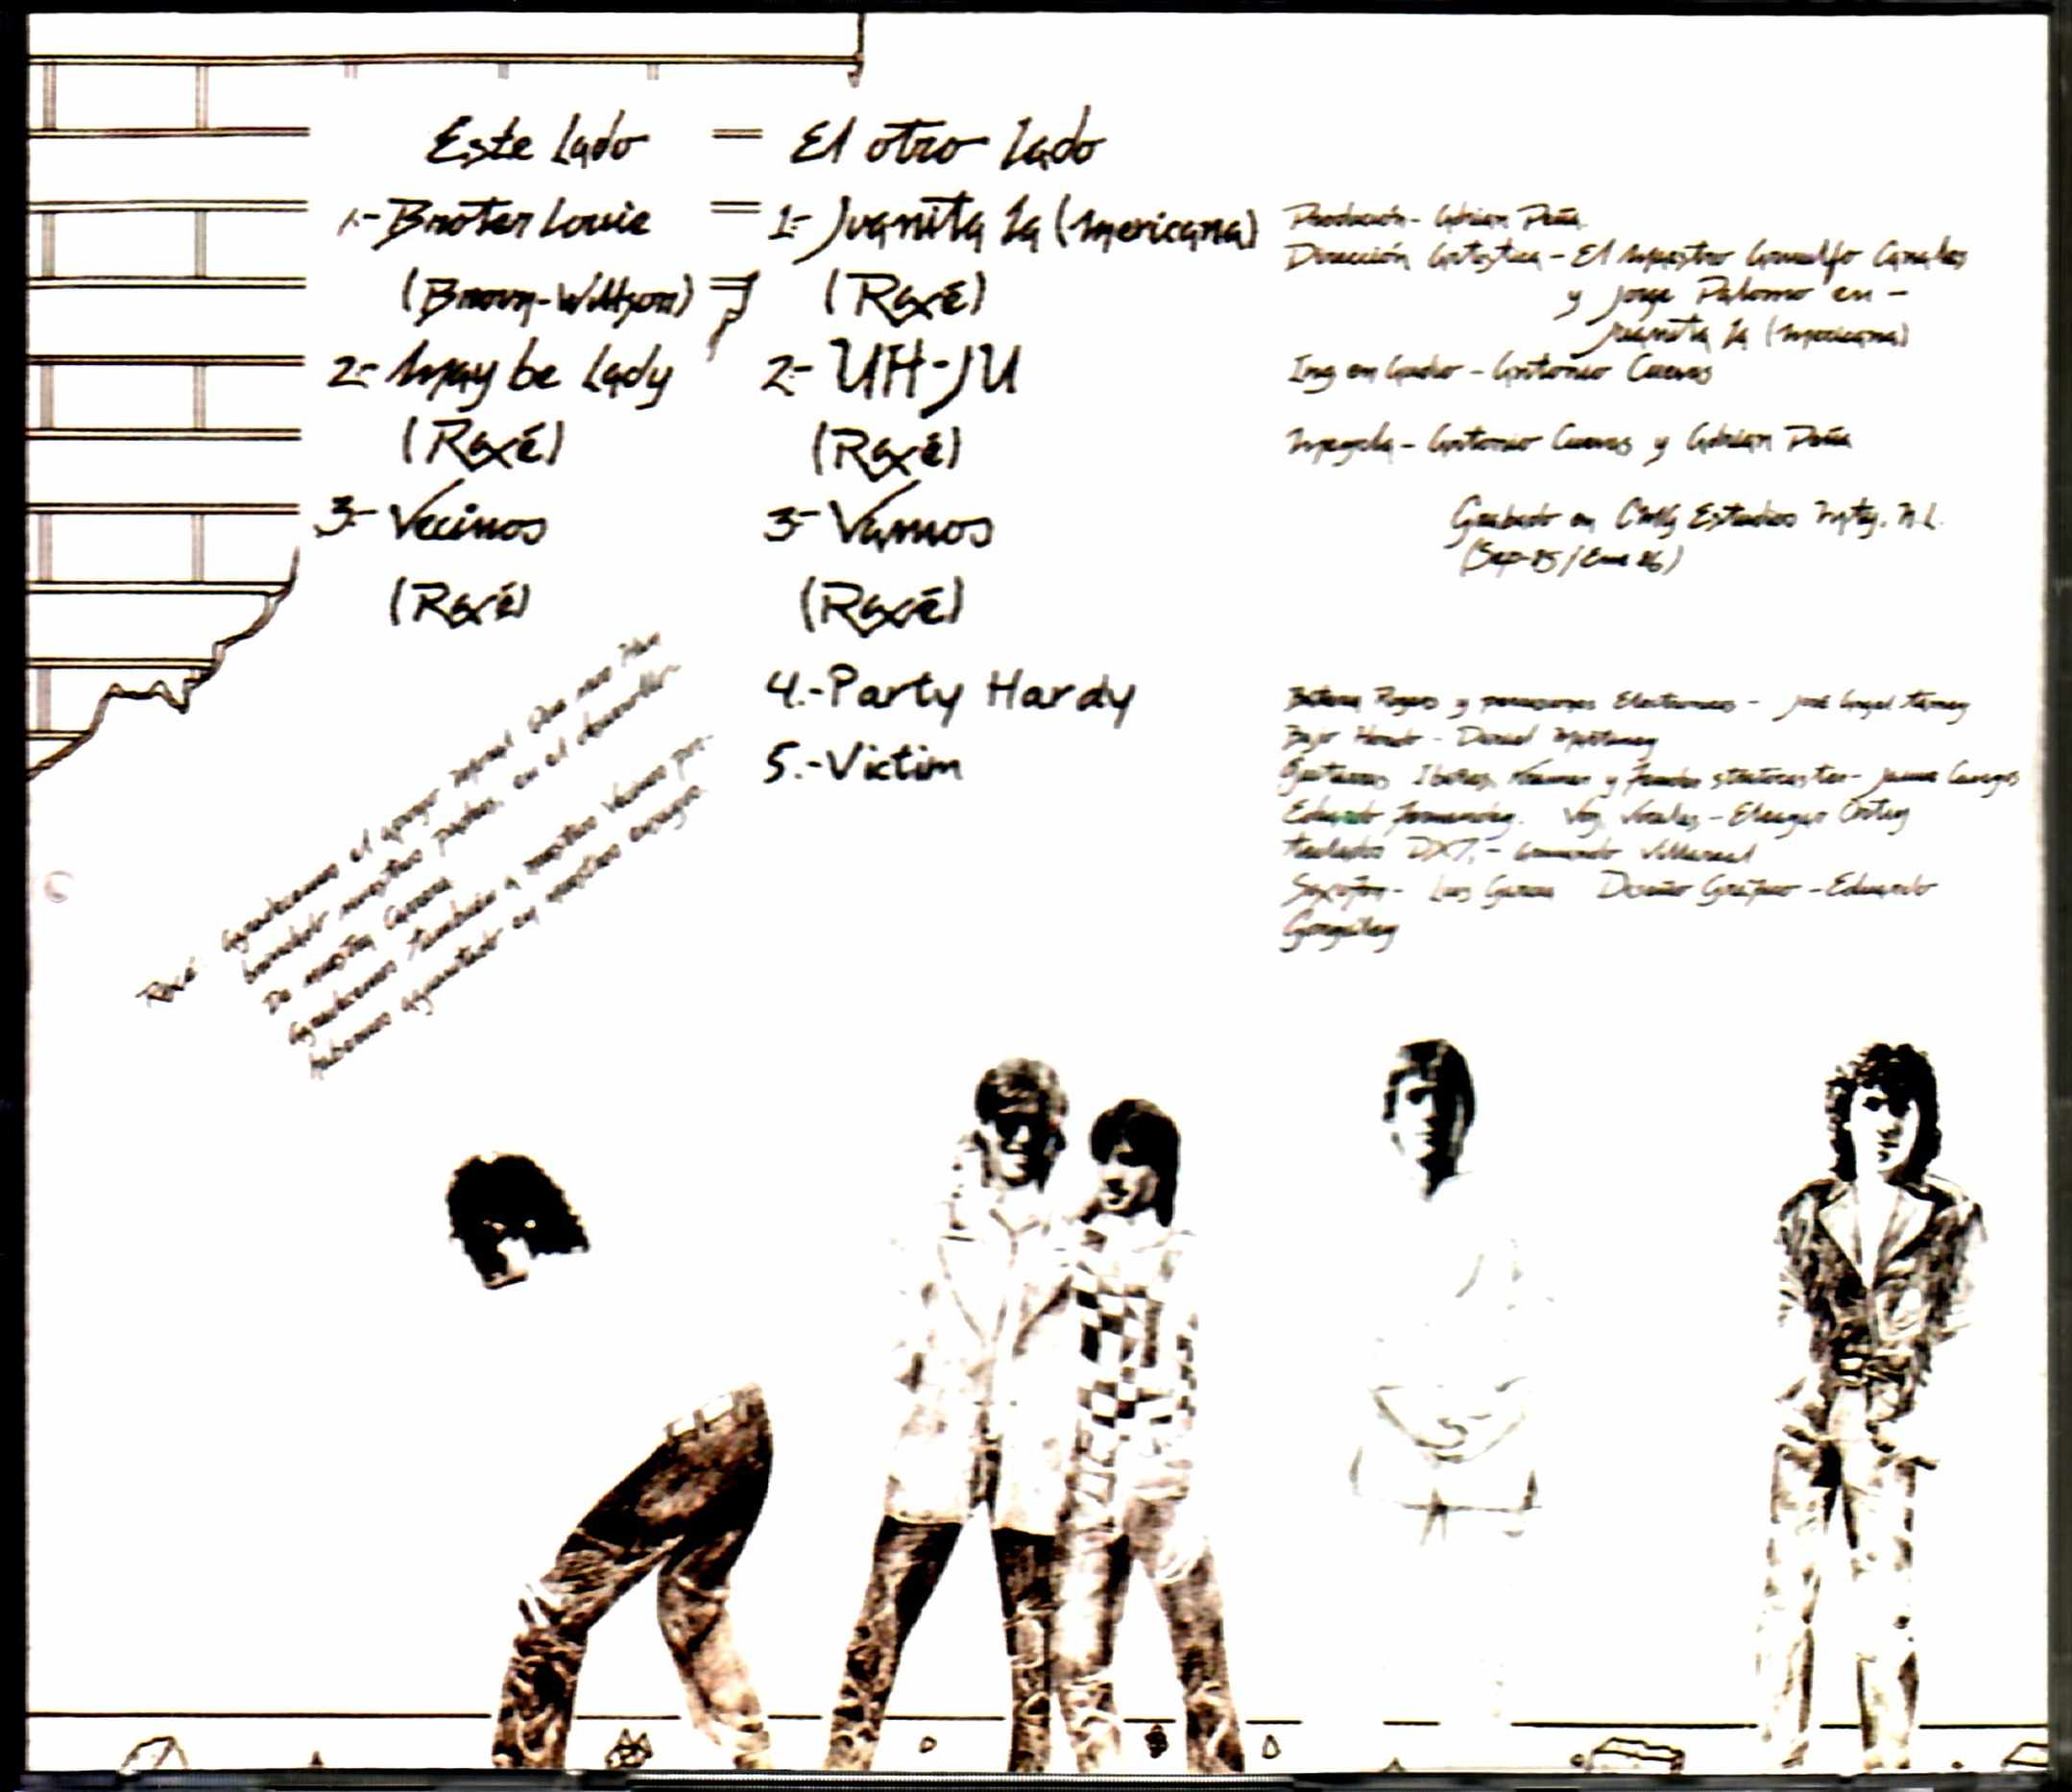 Este lado = El otro lado
1.- Broter Louie
(Brown-Willson)
2.- May be Lady
(Roxé)
3.- Vecinos
(Roxé)
1.- Juanita la (Mexicana)
(Roxé)
2.- UH-JU
(Roxé)
3.- Vamos
(Roxé)
4.-Party Hardy
5.-Victim
Producción - Adrian Peña
Dirección Artistica - El Maestro Canales
y Jorge Palomo en -
Juanita la (Mexicana)
Ing en Audio - Antonio Cuevas
Mezcla - Antonio Cuevas y Adrian Peña
Grabado en Estudios Mty. N.L.
(Sep-85/Ene 86)
Bateria Rogers y percusiones Electronicas - José Angel
Bajo - Daniel Martinez
Guitarras Ibanez, Kramer y Fender stratocaster - Jaime
Eduardo Fernandez. Voz, Vocales - Eleazar Ortiz
Teclados DX7, - Armando Villarreal
Saxofon - Luis Garza Diseño Grafico - Eduardo
González
Roxé Agradecemos el apoyo moral que nos han
brindado nuestros padres, en el desarrollo
De nuestra Carrera
Agradecemos también a nuestros Vecinos por-
habernos aguantado en nuestros ensayos.